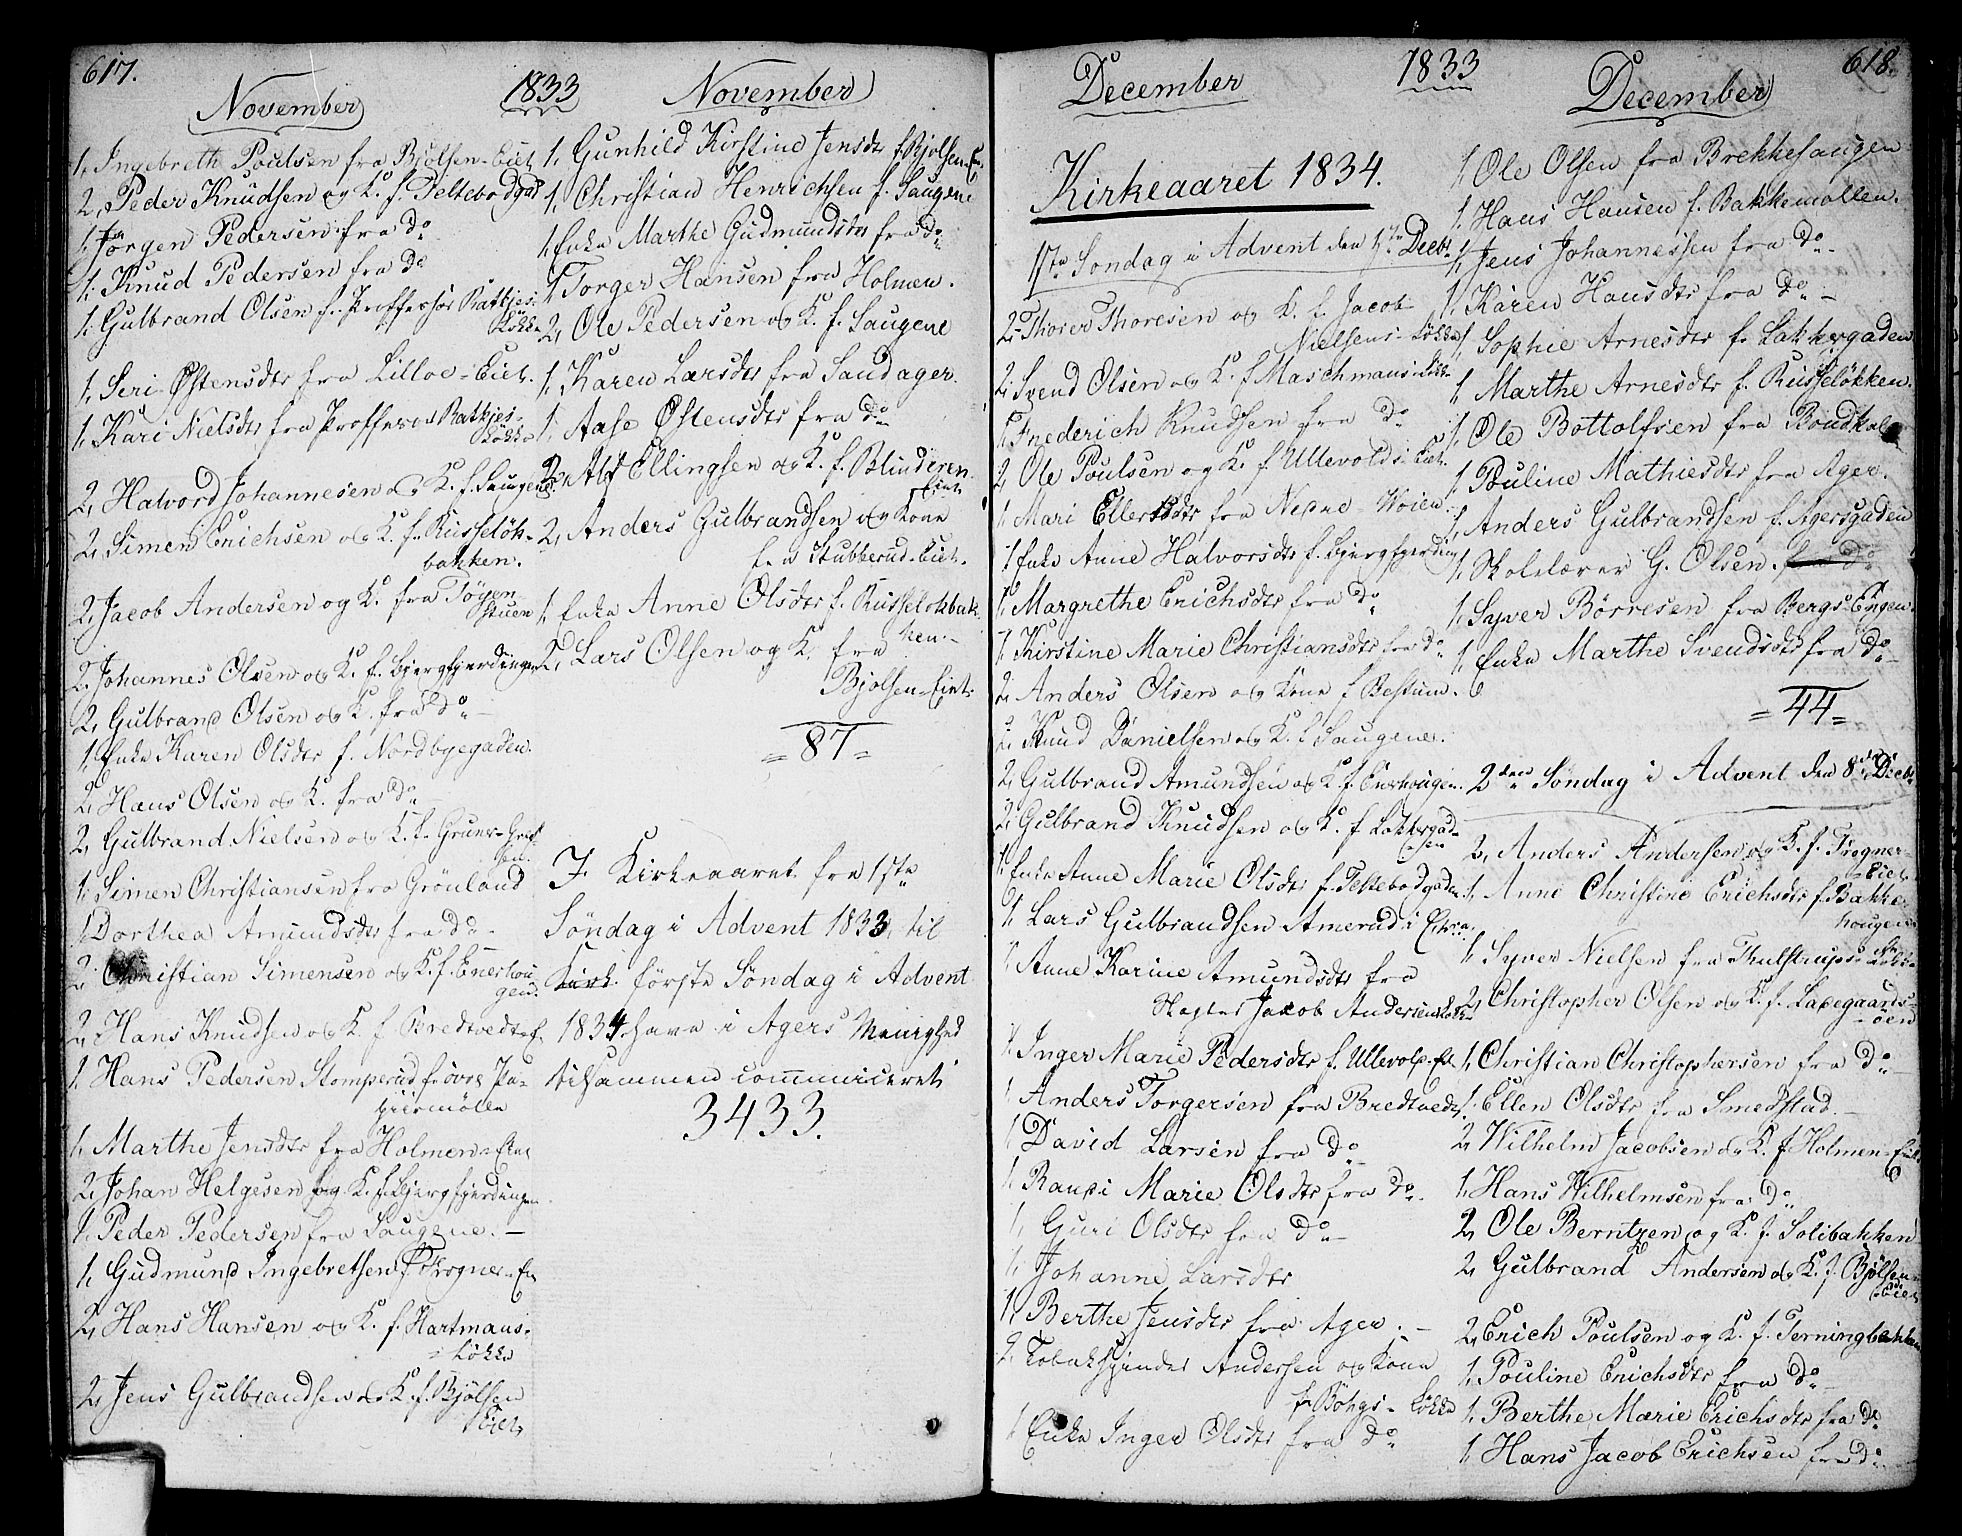 617.
November
1, Ingebreth Poulsen fra Bjølsen-Eiet
2, Peder Knudsen og K. f. Teltebodgad
1, Jørgen Pedersen fra do
1, Knud Pedersen fra do
1, Gulbrand Olsen f. Professor Ratkjes-
Løkke
1, Seri Østensdtr fra Lilloe-Eiet.
1, Kari Nielsdtr fra Professor Ratkjes-
Løkke
2, Halvord Johannesen og K. f. Saugene.
2, Simen Erichsen og K. f. Russeløk-
bakken.
2, Jacob Andersen og K. fra Tøyen-
stuen
2, Johannes Olsen og K. f. Bjergfjerdingen
2, Gulbrand Olsen og K. fra do
1, Enke Karen Olsdtr f. Nordbyegaden.
2, Hans Olsen og K. fra do
2, Gulbrand Nielsen og K. f. Gruner-
1, Simen Christiansen fra Grønland
1, Dorthea Amundsdtr fra do
2, Christian Simensen og K. f. Enerhou
gen.
2, Hans Knudsen og K. f. Bredtvedt
1, Hans Pedersen Stomperud fr. øvre Pa-
piirmølle
1, Marthe Jensdtr fra Holmen-Eiet
2, Johan Helgesen og K. f. Bjergfjerdingen
1, Peder Pedersen fra Saugene.
1, Gudmund Ingebretsen f. Frogner-
2, Hans Hansen og K. f. Hartmans-
Løkke
2, Jens Gulbrandsen og K. f. Bjølsen
Eiet
1833
November
1, Gunhild Kirstine Jensdtr f. Bjølsen-
1, Christian Henrichsen f. Saugene
1, Enke Marthe Gudmundsdtr fra do
1, Torger Hansen fra Holmen.
2, Ole Pedersen og K. f. Saugene
1, Karen Larsdtr fra Saudager
1, Aase Østensdtr fra do
2, Alf Ellingsen og K. f. Blinderen
Eiet
2, Anders Gulbrandsen og Kone
fra Stubberud-Eiet.
1, Enke Anne Olsdtr f. Russeløkbak
ken.
2, Lars Olsen og K. fra
Bjølsen-Eiet.
=87=
I Kirkeaaret fra 1ste
Søndag i Advent 1833, til
første Søndag i Advent
1834 have i Agers Menighed
tilsammen communiceret
3433.
December
1833
Kirkeaaret 1834.
1ste Søndag i Advent den 1ste Decbr
2, Thorer Thoresen og K. f. Jacob
Nielsens-Løkke
2, Svend Olsen og K. f. Maschmans-
1, Frederich Knudsen fra do
2, Ole Poulsen og K. f. Ullevolds-Eiet.
1, Mari Ellersdtr fra Nedre-Woien.
1, Enke Anne Halvorsdtr f. Bjergfjerding
1, Margrethe Erichsdtr fra do
1, Kirstine Marie Christiansdtr fra do
2, Anders Olsen og Kone f Bestum.
2, Knud Danielsen og K. f Saugene.
2, Gulbrand Amundsen og K. f. Enerhougen.
2, Gulbrand Knudsen og K. f Lakkergad
1, Enke Anne Marie Olsdtr f. Teltebodgaden
1, Lars Gulbrandsen Amerud i
1, Anne Karine Amundsdtr fra
Jacob Andersens
1, Inger Marie Pedersdtr f. Ullevold-
1, Anders Torgersen fra Bredtvedt
1, David Larsen fra do
1, Randi Marie Olsdtr fra do.
1, Guri Olsdtr fra do
1, Johanne Larsdtr
1, Berthe Jensdtr fra Ager.
2, Tobakspinder Andersen og Kone
f Böhgs-Løkke
1, Enke Inger Olsdtr fra do
618.
December
1, Ole Olsen fra Brekkesaugen
1, Hans Hansen f. Bakkemøllen.
1, Jens Johannessen fra do
1, Karen Hansdtr fra do
1, Sophie Arnesdtr f. Lakkergaden
1, Marthe Arnesdtr f. Russeløkken.
1, Ole Bottolfsen fra
1, Pouline Mathiesdtr fra Ager.
1, Anders Gulbrandsen f. Agersgaden
1, Skolelærer G. Olsen. fra do
1, Syver Børresen fra Bergs-Engen.
1, Enke Marthe Svendsdtr fra do
=44=
2den Søndag i Advent den 8de Decbr
2, Anders Andersen og K. f. Frogner-
Eiet
1, Anne Christine Erichsdtr f. Bakke
hougen
1, Syver Nielsen fra Thulstrups-
Løkke
2, Christopher Olsen og K. f. Ladegaards-
øen
1, Christian Christophersen fra do
1, Ellen Olsdtr fra Smedstad.
2, Wilhelm Jacobsen og K. f Holmen-
1, Hans Wilhelmsen fra do
2, Ole Berntzen og K. f. Solibakken
2, Gulbrand Andersen og K. f. Bjølsen
Eiet
2, Erich Poulsen og K. f. Terningbakken
1, Pouline Erichsdtr fra do
1, Berthe Marie Erichsdtr fra do
1, Hans Jacob Erichsen fra do